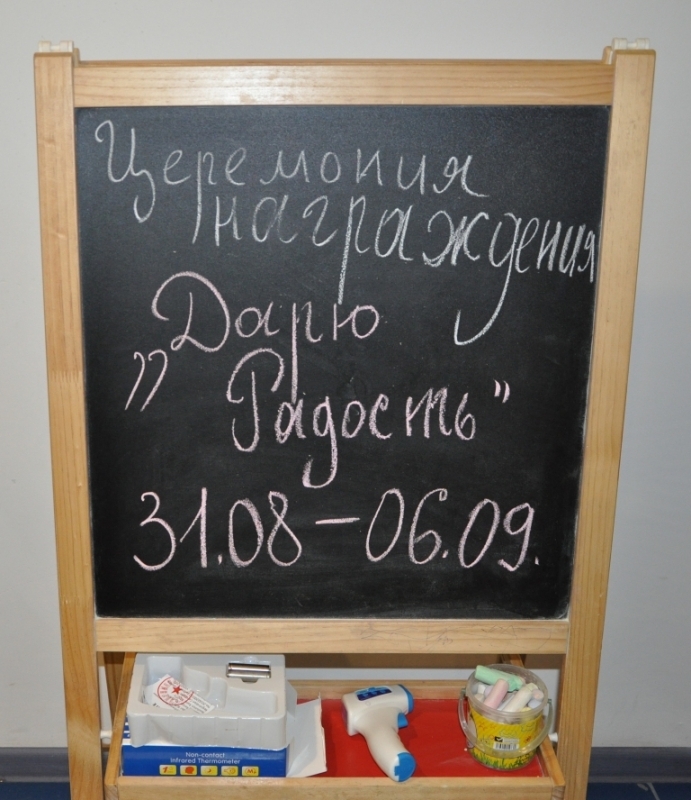 Церемония
награждения
„Дарю
Радость"
31.08-06.09.
Non-contact
Infrared Thermometer